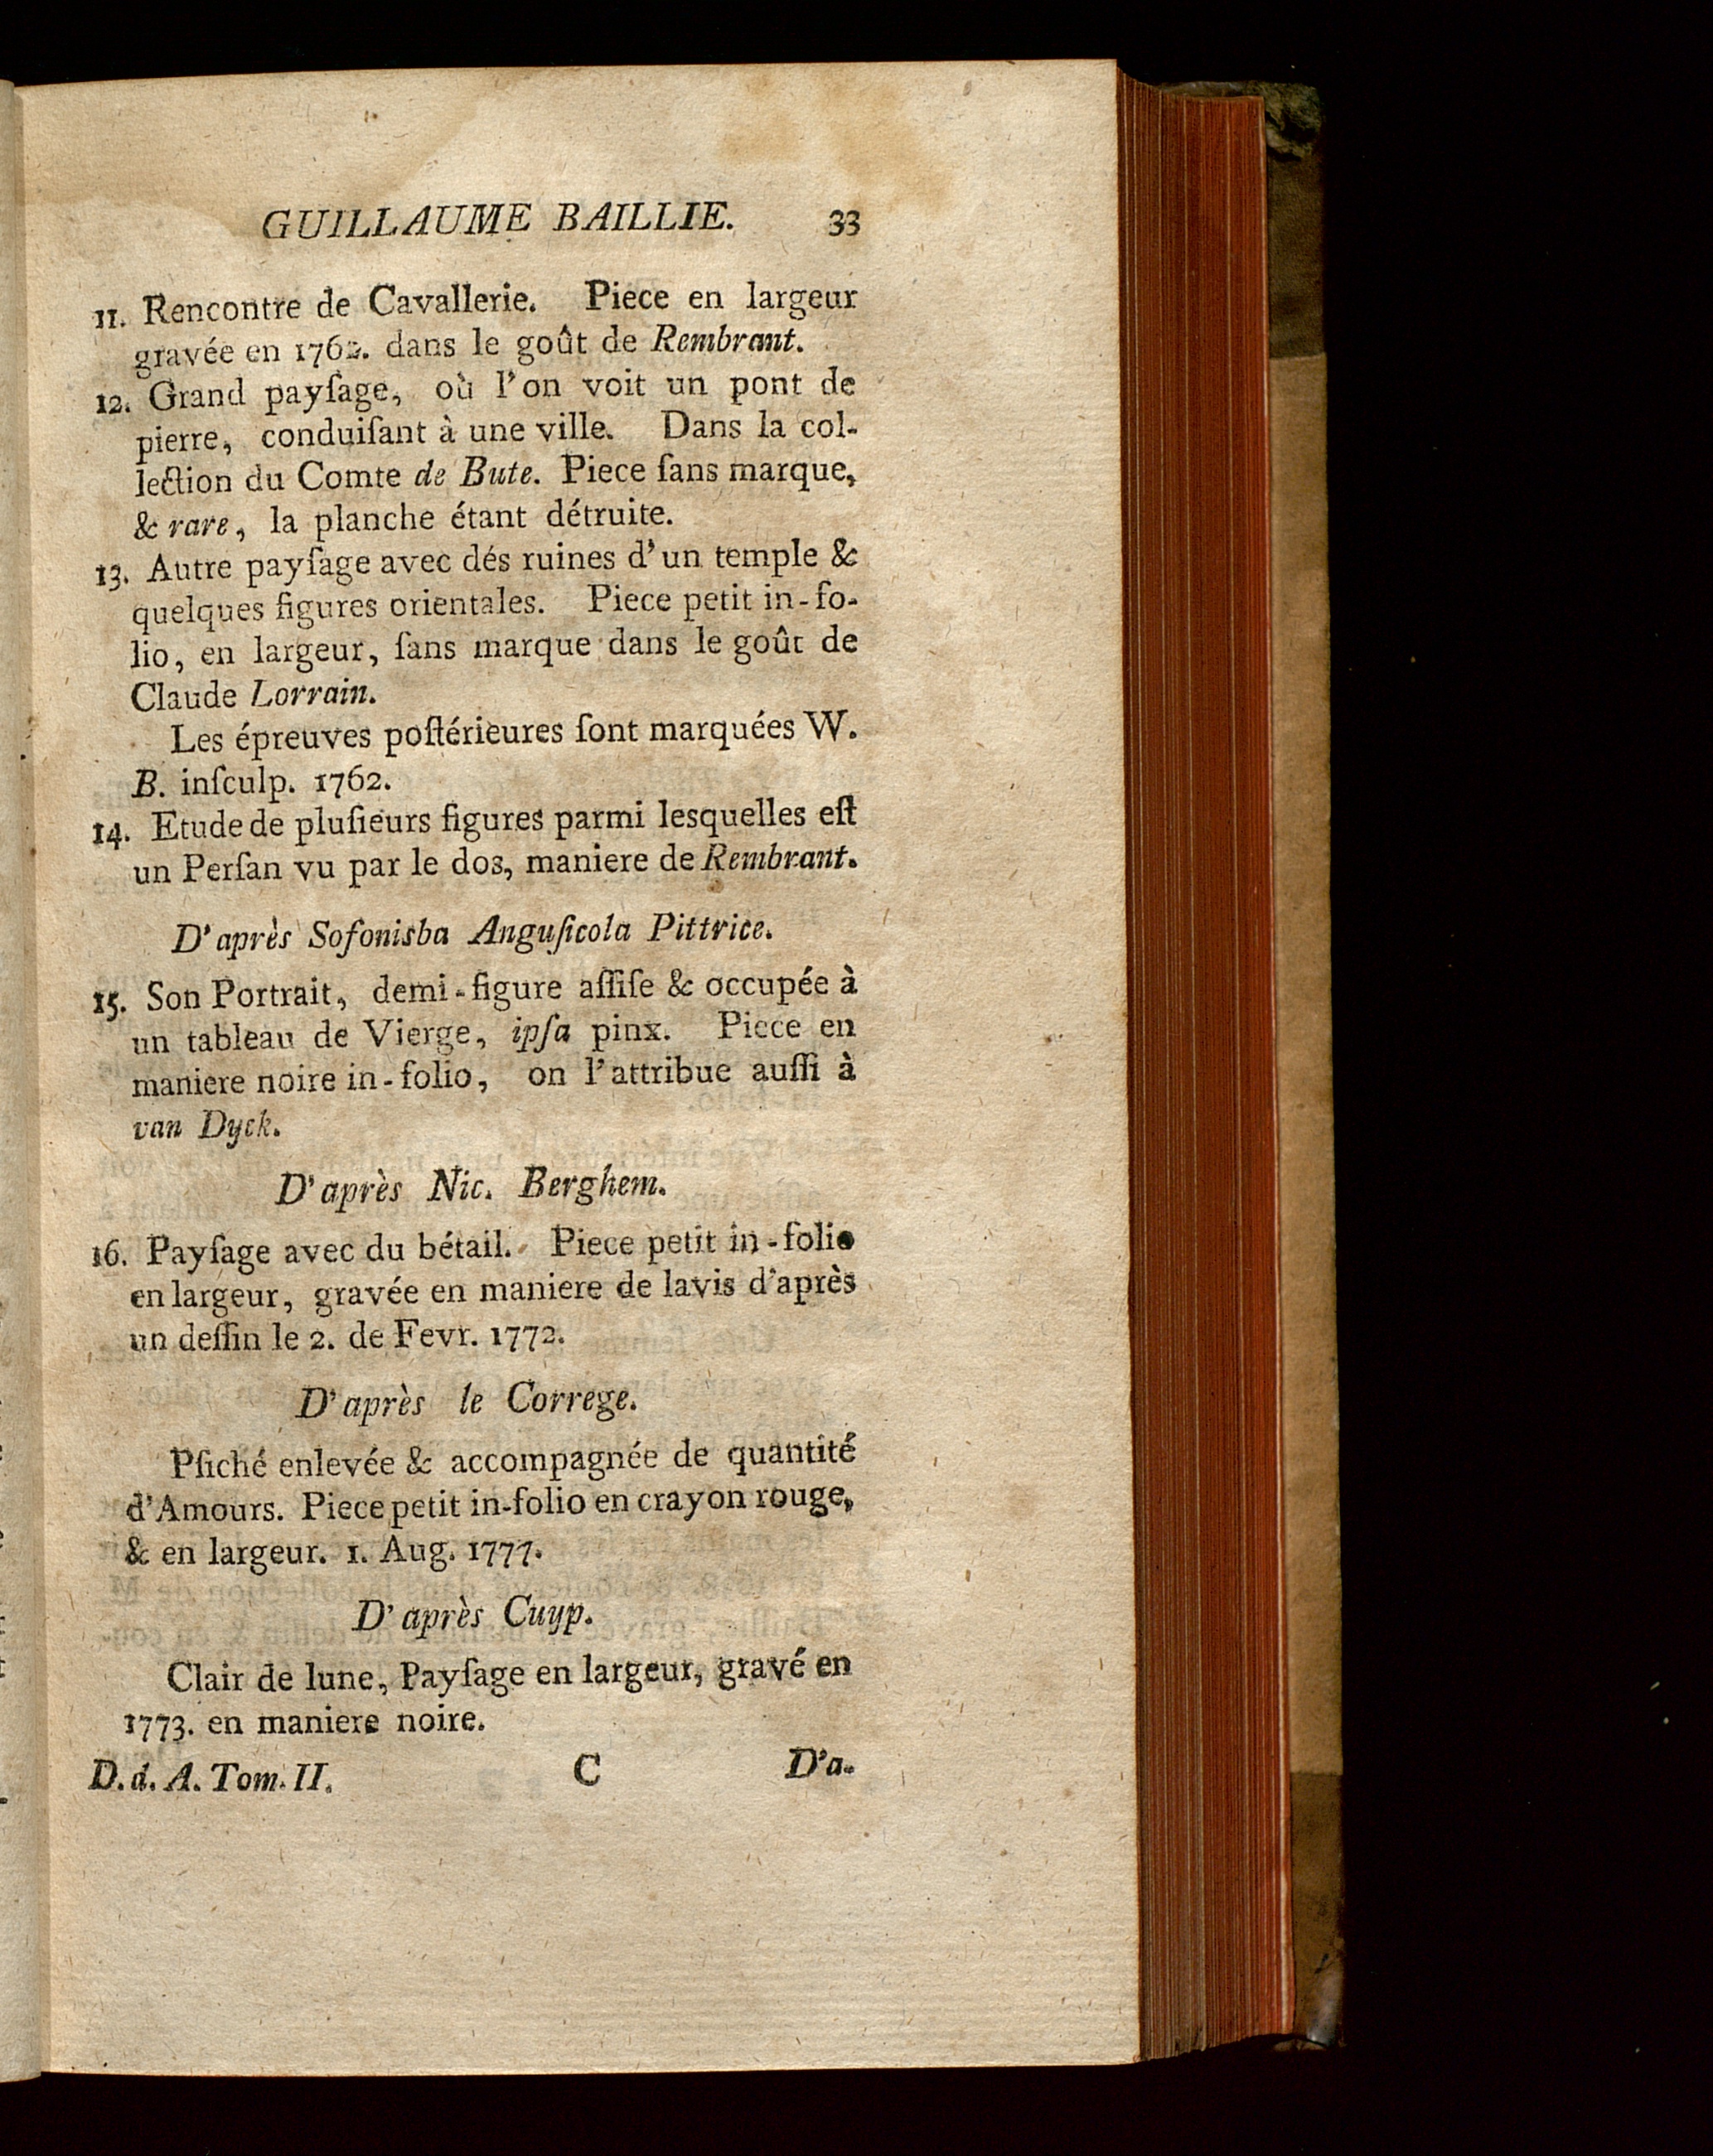 GUILLAUME BAILLIE. 33
11. Rencontre de Cavallerie. Piece en largeur
gravée en 1762. dans le goût de Rembrant.
12. Grand payſage, où l'on voit un pont de
pierre, conduiſant à une ville. Dans la col-
lection du Comte de Bute. Piece ſans marque,
& rare, la planche étant détruite.
13. Autre payſage avec dés ruines d'un temple &
quelques figures orientales. Piece petit in-fo-
lio, en largeur, ſans marque dans le goût de
Claude Lorrain.
Les épreuves poſtérieures ſont marquées W.
B. inſculp. 1762.
14. Etude de pluſieurs figures parmi lesquelles eſt
un Perſan vu par le dos, maniere de Rembrant.
D'après Sofonisba Anguſicola Pittrice.
15. Son Portrait, demi-figure aſſiſe & occupée à
un tableau de Vierge, ipſa pinx. Piece en
maniere noire in-folio, on l'attribue auſſi à
van Dyck.
D'après Nic. Berghem.
16. Payſage avec du bétail. Piece petit in-folio
en largeur, gravée en maniere de lavis d'après
un deſſin le 2. de Fevr. 1772.
D'après le Correge.
Pſiché enlevée & accompagnée de quantité
d'Amours. Piece petit in-folio en crayon rouge,
& en largeur. 1. Aug. 1777.
D'après Cuyp.
Clair de lune, Payſage en largeur, gravé en
1773. en maniere noire.
D. d. A. Tom. II. C D'a-